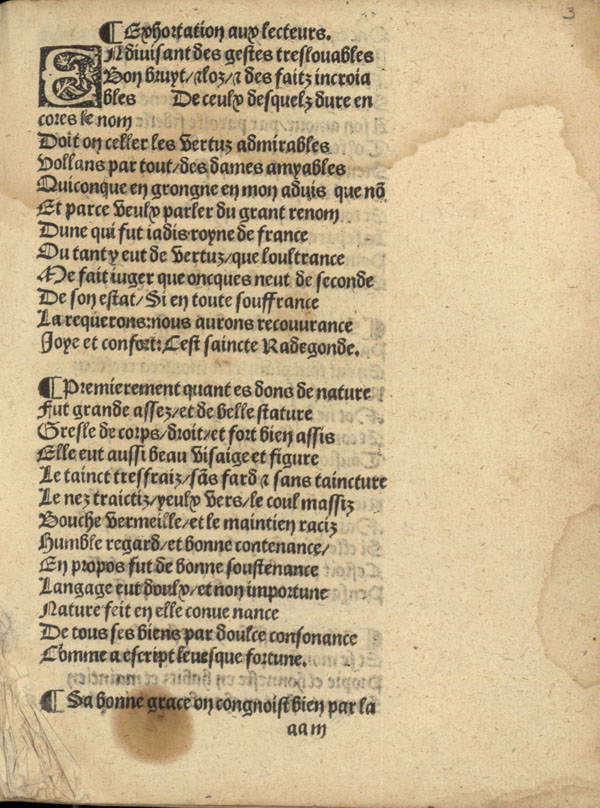 3
¶ Exhortation aux lecteurs.
Endiuisant des gestes treslouables
Bon bruyt/⁊ loz/⁊ des faitz incroia
bles De ceulx desquelz dure en
cores le nom
Doit on celler les vertuz admirables
Vollans par tout/des dames amyables
Quiconque en grongne en mon aduis que nō
Et parce veulx parler du grant renom
Dune qui fut iadis royne de france
Ou tant y eut de vertuz/que loultrance
Me fait iuger que oncques neut de seconde
De son estat/Si en toute souffrance
La requerons:nous aurons recouurance
Joye et confort:Cest saincte Radegonde.
¶ Premierement quant es dons de nature
Fut grande assez/et de belle stature
Gresle de corps/droit/et fort bien assis
Elle eut aussi beau visaige et figure
Le tainct tresfraiz/sās fard ⁊ sans taincture
Le nez traictiz/yeulx vers/le coul massiz
Bouche vermeille/et le maintien raciz
Humble regard/et bonne contenance/
En propos fut de bonne soustenance
Langage eut doulx/et non importune
Nature feit en elle conue nance
De tous ses biens par doulce consonance
Comme a escript leuesque fortune.
¶ Sa bonne grace on congnoist bien par la
aa iii